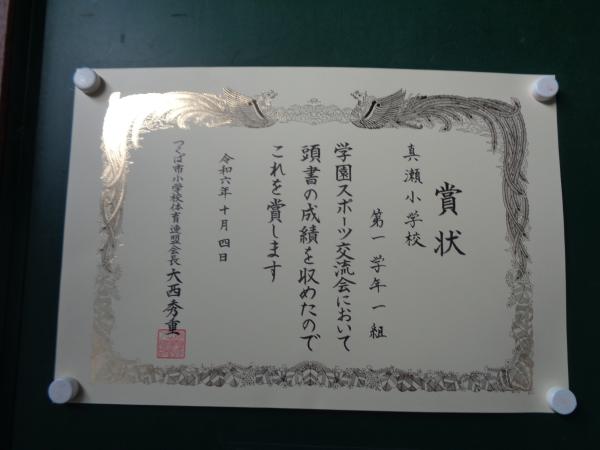 賞状
真瀬小学校
第一学年一組
学園スポーツ交流会において
頭書の成績を収めたので
これを賞します
令和六年十月四日
つくば市小学校体育連盟会長 大西秀重